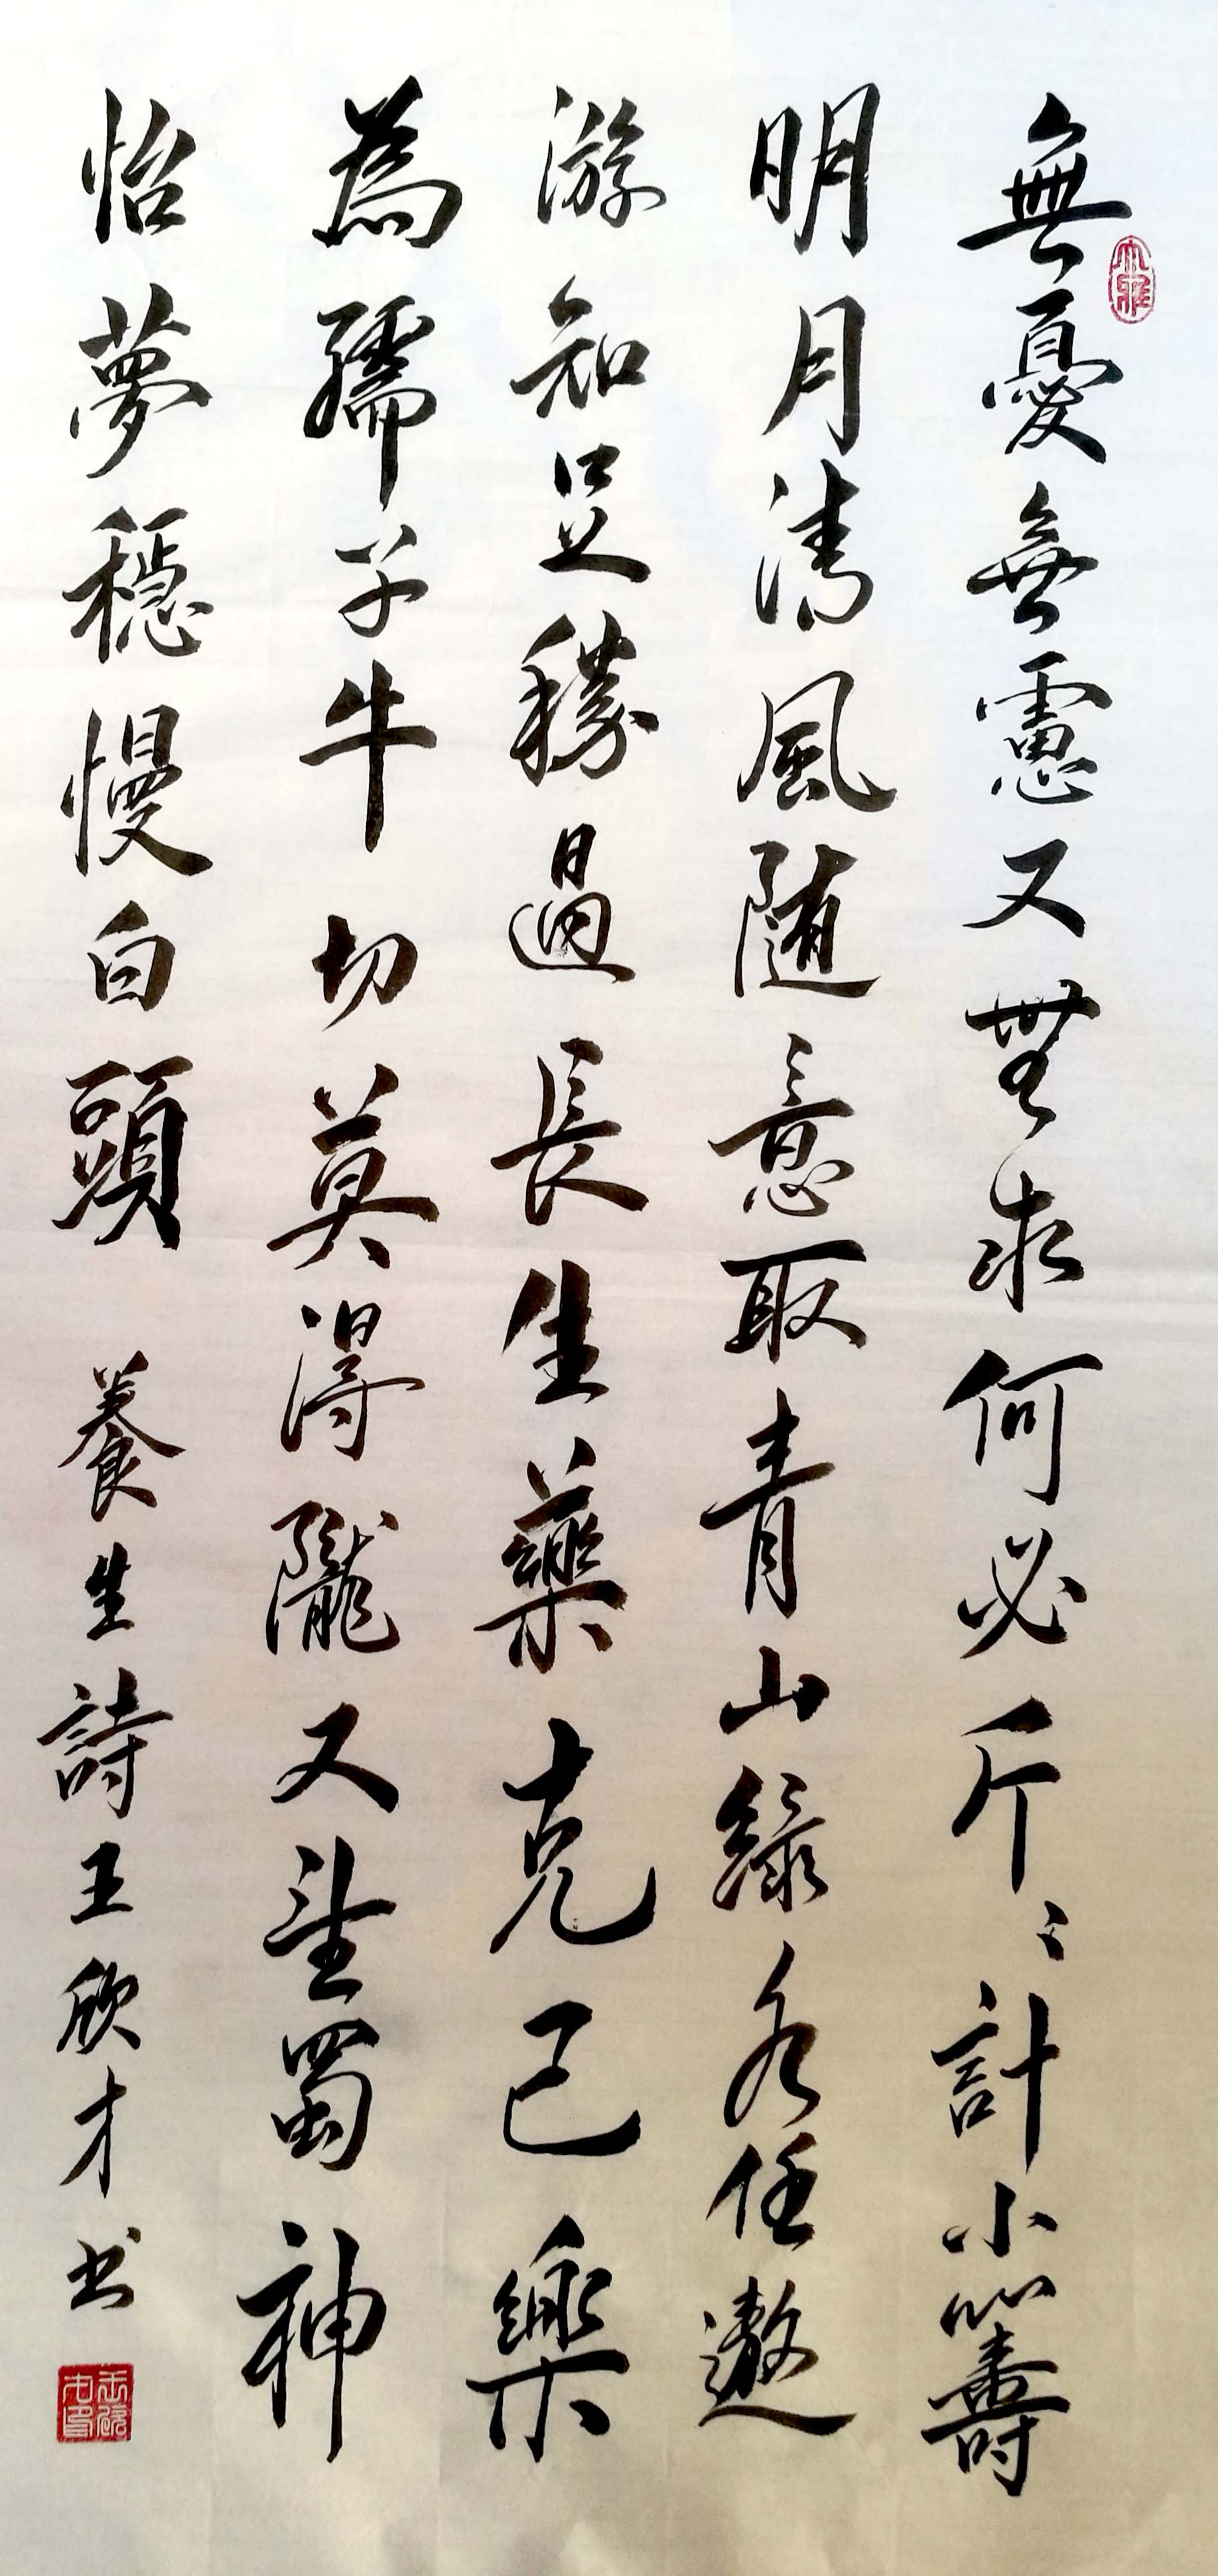 無憂無慮又無求何必斤〻計小籌
明月清風隨意取青山綠水任遨
游知足勝過長生藥克己樂
為孺子牛切莫得隴又望蜀神
怡夢穩慢白頭 養生詩王欣才书